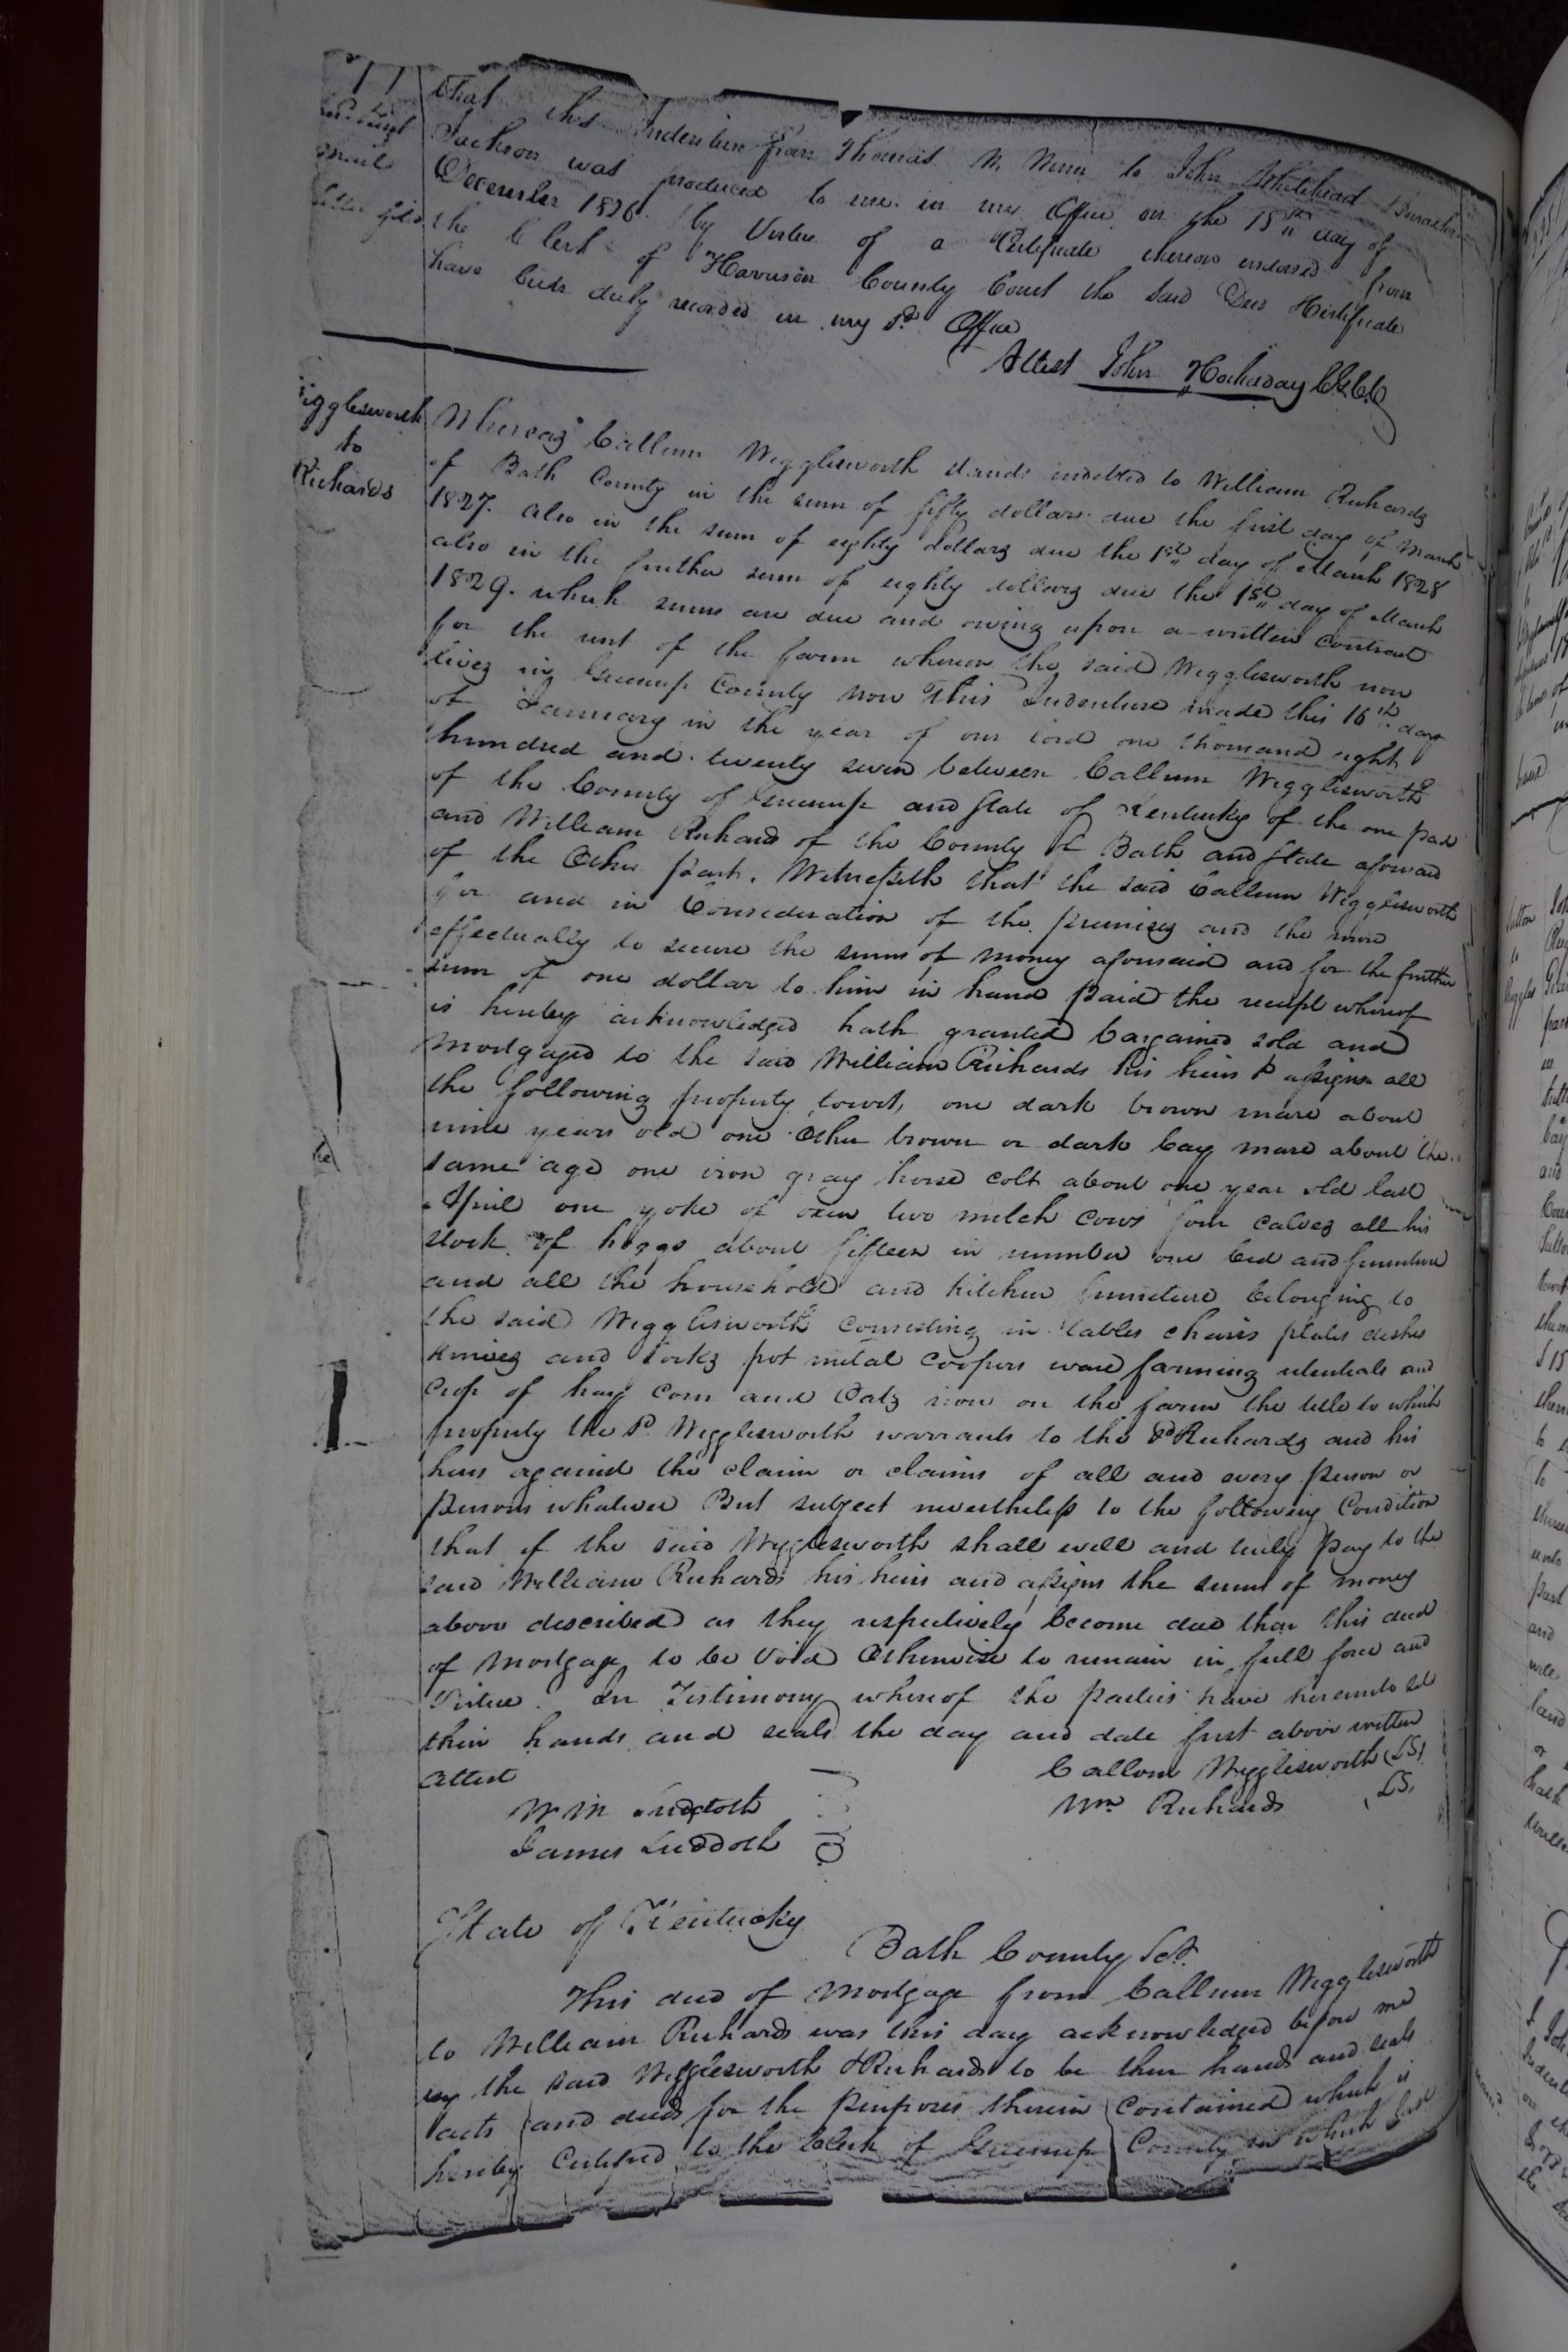 that this Indenture from Thomas M to John Whitehead
Jackson was produced to me in my Office on the 15th day of
December 1826. by Virtue of a Certificate thereon endorsed from
the Clerk of Harrison County Court the said Deed &
have been duly recorded in my sd. Office
Attest John Hockaday C.G.C.C
igglesworth
to
Richards
Whereas Callum Wigglesworth stands indebted to William Richards
of Bath County in the sum of fifty dollars due the first day of March
1827. also in the sum of eighty dollars due the 1st day of March 1828
also in the further sum of eighty dollars due the 1st day of March
1829. which sums are due and owing upon a written contract
for the rent of the farm whereon the said Wigglesworth now
lives in Greenup County Now This Indenture made this 16th day
of January in the year of our lord one thousand eight
hundred and twenty seven between Callum Wigglesworth
of the County of Greenup and State of Kentucky of the one part
and William Richard of the County of Bath and State aforesaid
of the Other part. Witnesseth that the said Callum Wigglesworth
for and in Consideration of the premises and the more
effectually to secure the sums of money aforesaid and for the further
sum of one dollar to him in hand paid the receipt whereof
is hereby acknowledged hath granted bargained sold and
mortgaged to the said William Richards his heirs & assigns all
the following property towit, one dark brown mare about
nine years old one Other brown or dark bay mare about the
same age one iron gray horse colt about one year old last
April one yoke of oxen two milch cows four calves all his
stock of hoggs about fifteen in number one bed and furniture
and all the household and kitchen furniture belonging to
the said Wigglesworth consisting in tables chairs plates dishes
knives and forks pot mettal Coopers ware farming utentials and
Crop of hay Corn and Oats now on the farm the title to which
property the sd. Wigglesworth warrants to the sd Richards and his
heirs against the claim or claims of all and every person or
persons whatever But subject nevertheless to the following Condition
that if the said Wigglesworth shall well and truly pay to the
said William Richards his heirs and assigns the sums of money
above described as they respectively become due than this deed
of Mortgage to be Void Otherwise to remain in full force and
Virtue. In Testimony whereof the parties have hereunto set
their hands and seals the day and date first above written
Attest
Callom Wigglesworth (LS)
W M Suddoth
Wm Richards (LS)
James Suddoth
State of Kentucky
Bath County Sct.
This deed of Mortgage from Callum Wigglesworth
to William Richards was this day acknowledged before me
by the said Wigglesworth & Richards to be their hands and seals
acts and deeds for the purposes therein Contained which is
hereby Certified to the Clerk of Greenup County in which